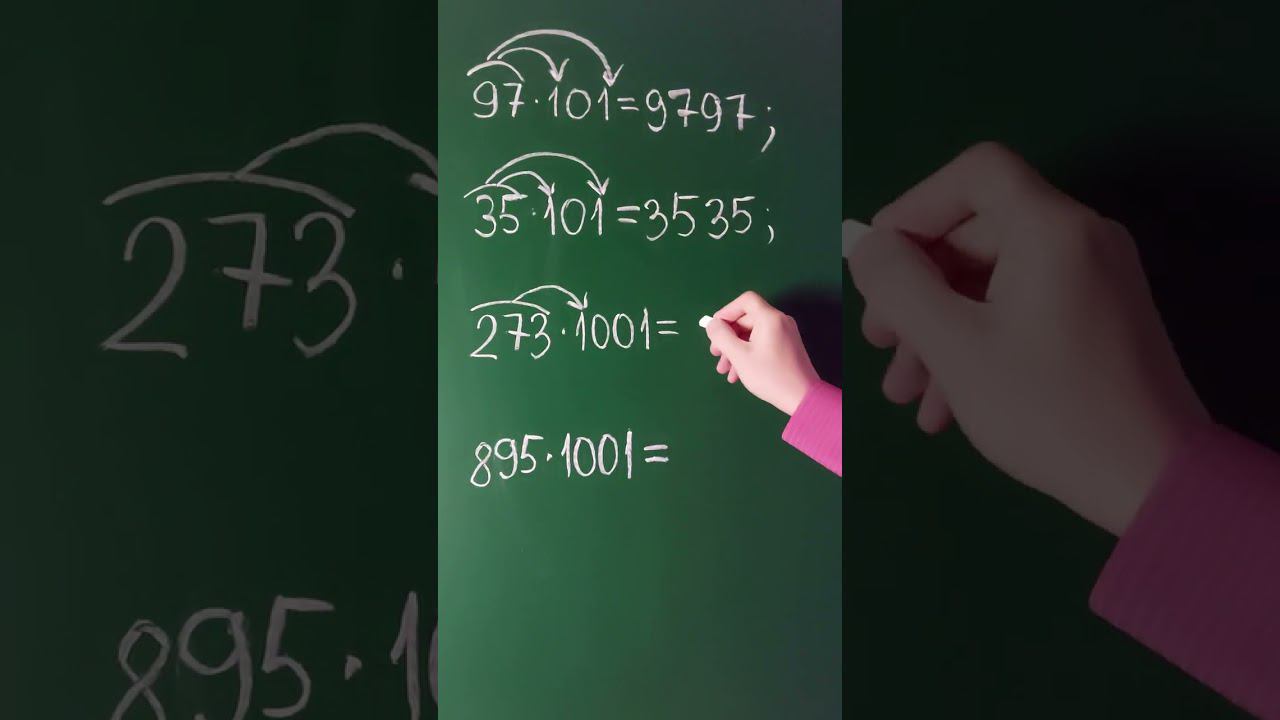 97·101=9797;
35·101=3535;
273·1001=
895·1001=